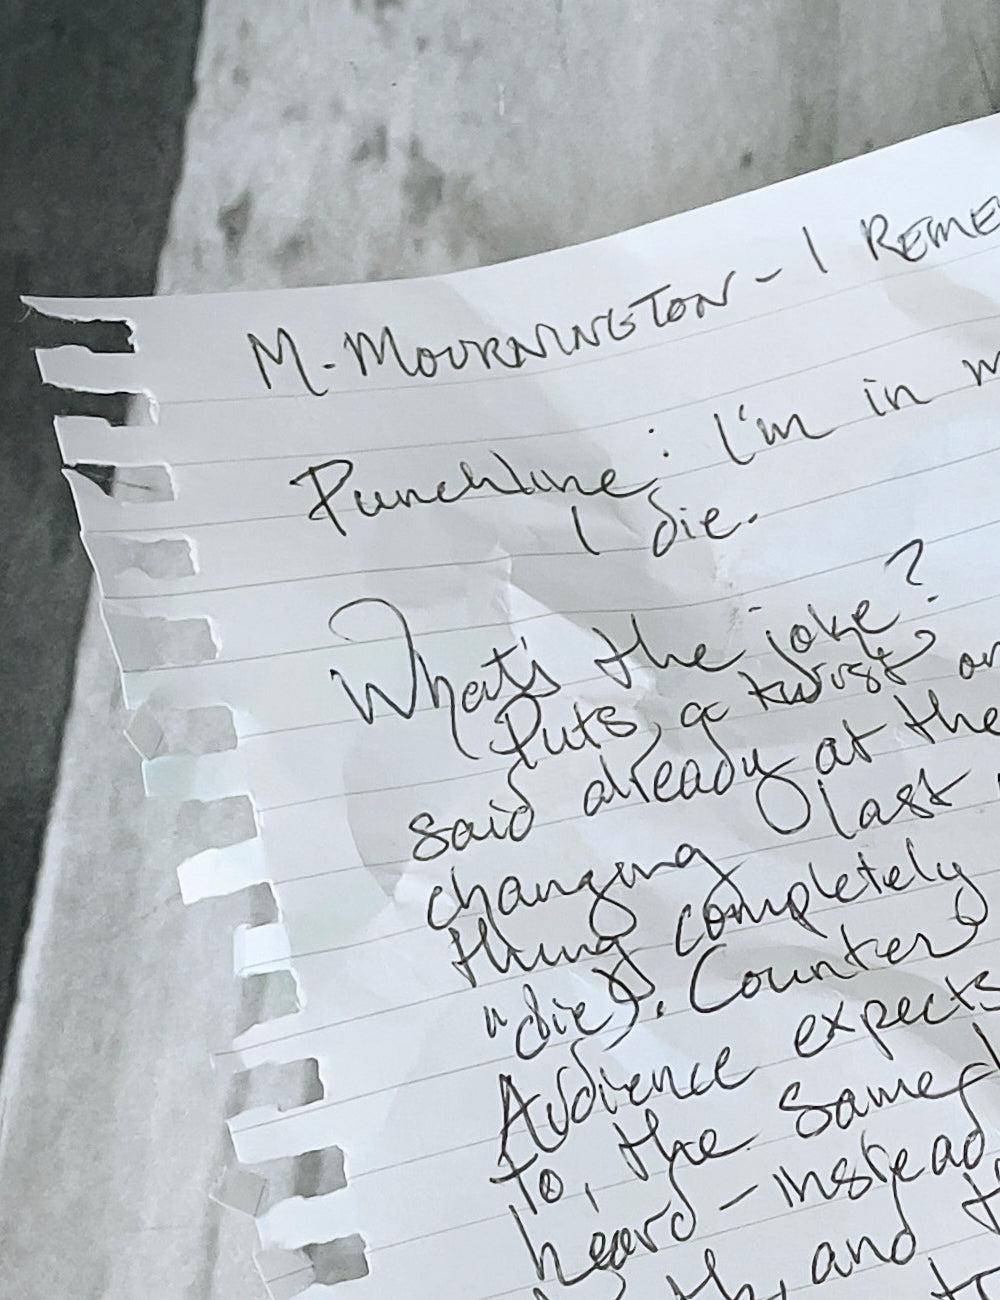 M. MOURNINGTON - I REME
Punchline: I'm in
I die.
What's the joke?
Puts a twist on
said already at the
changing last
thing completely
"die). Counter
Audience expects
to, the same
heard - instead
and